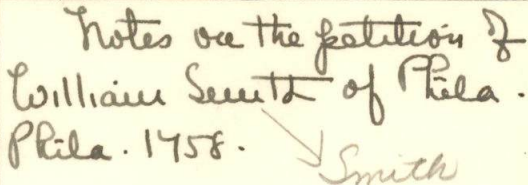 Notes on the petition of
William Smith of Phila.
Phila. 1758.
Smith